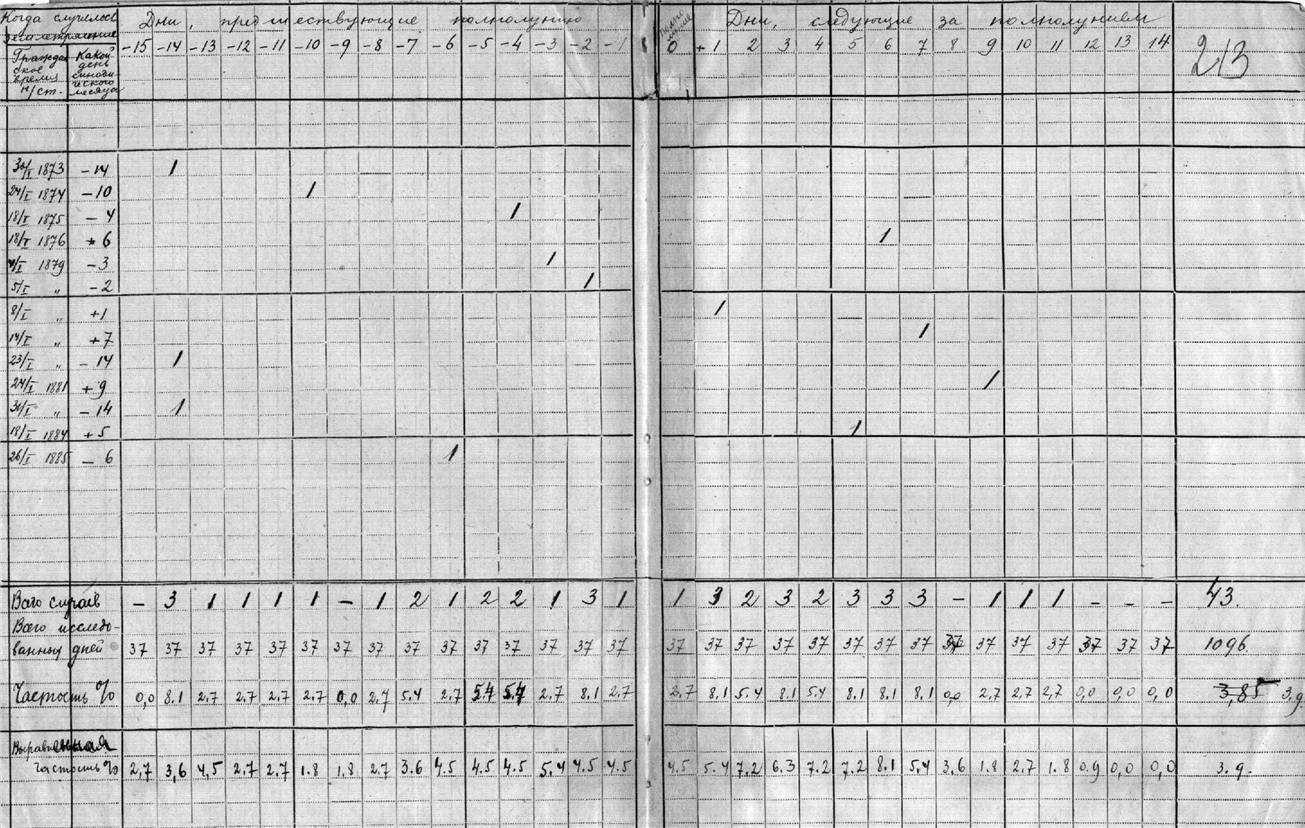 Когда случилось землетрясение Дни, предшествующие полнолунию Дни, следующие за полнолунием
Гражданское время н/ст. Какой день синодического месяца -15 -14 -13 -12 -11 -10 -9 -8 -7 -6 -5 -4 -3 -2 -1 0 +1 2 3 4 5 6 7 8 9 10 11 12 13 14 213
30/I 1873 -14 1
24/I 1874 -10 1
18/I 1875 -4 1
18/I 1876 +6 1
4/I 1879 -3 1
5/I „ -2 1
8/I „ +1 1
14/I „ +7 1
23/I „ -14 1
24/I 1881 +9 1
30/I „ -14 1
18/I 1884 +5 1
26/I 1885 -6 1
Всего случаев - 3 1 1 1 1 - 1 2 1 2 2 1 3 1 1 3 2 3 2 3 3 3 - 1 1 1 - - - 43.
Всего исследо-
ванных дней 37 37 37 37 37 37 37 37 37 37 37 37 37 37 37 37 37 37 37 37 37 37 37 37 37 37 37 37 37 37 1096.
Частость % 0,0 8.1 2,7 2.7 2.7 2,7 0,0 2,7 5.4 2.7 5.4 5.4 2.7 8.1 2,7 2,7 8.1 5.4 8.1 5.4 8.1 8.1 8.1 0,0 2.7 2.7 2,7 0,0 0,0 0,0 3,85 3.9
Выравненная
частость % 2,7 3,6 4,5 2.7 2.7 1.8 1.8 2.7 3.6 4.5 4.5 4.5 5.4 4.5 4.5 4.5 5.4 7.2 6.3 7.2 7.2 8.1 5,4 3.6 1.8 2.7 1.8 0.9 0,0 0,0 3.9.